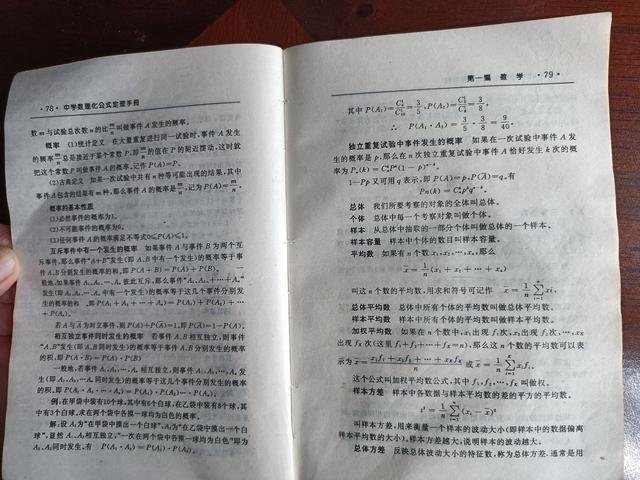 ·78· 中学数理化公式定理手册
数 m 与试验总次数 n 的比 m/n 叫做事件 A 发生的频率。
概率 (1)统计定义 在大量重复进行同一试验时,事件 A 发生
的频率 m/n 总是接近于某个常数 P,即 m/n 的值在 P 的附近摆动,这时就
把这个常数 P 叫做事件 A 的概率,记作 P(A)=P。
(2)古典定义 如果一次试验中共有 n 种等可能出现的结果,其中
事件 A 包含的结果有 m 种,那么事件 A 的概率是 m/n,记为 P(A)=m/n。
概率的基本性质
(1)必然事件的概率为1。
(2)不可能事件的概率为0。
(3)任何事件 A 的概率满足不等式0≤P(A)≤1。
互斥事件中有一个发生的概率 如果事件 A 与事件 B 为两个互
斥事件,那么事件"A+B"发生(即 A、B 中有一个发生)的概率等于事
件 A、B 分别发生的概率的和,即 P(A+B)=P(A)+P(B)。
般地,如果事件 A₁、A₂、…、Aₙ 彼此互斥,那么事件"A₁+A₂+…+Aₙ"
发生(即 A₁、A₂、…、Aₙ 中有一个发生)的概率等于这几个事件分别发
生的概率的和,即 P(A₁+A₂+…+Aₙ)=P(A₁)+P(A₂)+…
+P(Aₙ)。
若 A 与 Ā 为对立事件,则 P(A)+P(Ā)=1,即 P(Ā)=1-P(A)。
相互独立事件同时发生的概率 若事件 A、B 相互独立,则事件
"A、B"发生(即 A、B 同时发生)的概率等于事件 A、B 分别发生的概率
的积,即 P(A·B)=P(A)·P(B)
一般地,若事件 A₁、A₂、…、Aₙ 相互独立,则事件 A₁、A₂、…、Aₙ 发
生(即 A₁、A₂、…Aₙ 同时发生)的概率等于这几个事件分别发生的概率
的积,即 P(A₁·A₂·…·Aₙ)=P(A₁)·P(A₂)·…·P(Aₙ)。
例,在甲袋中装有10个球,其中有6个白球,在乙袋中装有8个球,其
中有3个白球,求在两个袋中各摸一球均为白色的概率。
解:设 A₁为"在甲袋中摸出一个白球",A₂为"在乙袋中摸出一个白
球",显然 A₁、A₂相互独立,"一次在两个袋中各摸一球均为白色"即为
A₁、A₂同时发生。有 P(A₁·A₂)=P(A₁)·P(A₂)
第一篇 数学 ·79·
其中 P(A₁)=C₆¹/C₁₀¹=3/5,P(A₂)=C₃¹/C₈¹=3/8,
∴ P(A₁·A₂)=3/5·3/8=9/40。
独立重复试验中事件发生的概率 如果在一次试验中事件 A 发
生的概率是 p,那么在 n 次独立重复试验中事件 A 恰好发生 k 次的概
率为 Pₙ(k)=CₙᵏPᵏ(1-p)ⁿ⁻ᵏ。
1-Pp 又可用 q 表示,即 P(A)=p,P(Ā)=q,有
Pn(k)=Cₙᵏpᵏqⁿ⁻ᵏ。
总体 我们所要考察的对象的全体叫总体。
个体 总体中每一个考察对象叫做个体。
样本 从总体中抽取的一部分个体叫做总体的一个样本。
样本容量 样本中个体的数目叫样本容量。
平均数 如果有 n 个数 x₁,x₂,…,xₙ,那么
x̄=1/n(x₁+x₂+…+xₙ)
叫这 n 个数的平均数,用求和符号可记作 x̄=1/n∑ᵢ₌₁ⁿxᵢ,
总体平均数 总体中所有个体的平均数叫做总体平均数。
样本平均数 样本中所有个体的平均数叫做样本平均数。
加权平均数 如果在 n 个数中,x₁出现 f₁次,x₂出现 f₂次,…,xₖ
出现 fₖ 次(这里 f₁+f₂+…+fₖ=n),那么这 n 个数的平均数可以表
示为 x̄=(x₁f₁+x₂f₂+…+xₖfₖ)/n 或 x̄=1/n∑ᵢ₌₁ᵏxᵢfᵢ。
这个公式叫加权平均数公式,其中 f₁,f₂,…,fₖ 叫做权。
样本方差 样本中各数据与样本平均数的差的平方的平均数。
s²=1/n∑ᵢ₌₁ⁿ(xᵢ-x̄)²
叫样本方差,用来衡量一个样本的波动大小(即样本中的数据偏离
样本平均数的大小),样本方差越大,说明样本的波动越大。
总体方差 反映总体波动大小的特征数,称为总体方差,通常是用